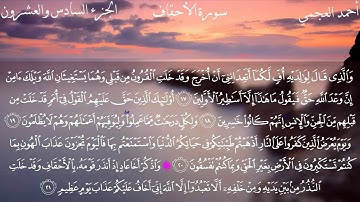 أحمد العجمي سورة الأحقاف الجزء السادس والعشرون
وَالَّذِي قَالَ لِوَالِدَيْهِ أُفٍّ لَّكُمَا أَتَعِدَانِنِي أَنْ أُخْرَجَ وَقَدْ خَلَتِ الْقُرُونُ مِن قَبْلِي وَهُمَا يَسْتَغِيثَانِ اللَّهَ وَيْلَكَ ءَامِنْ
إِنَّ وَعْدَ اللَّهِ حَقٌّ فَيَقُولُ مَا هَٰذَا إِلَّا أَسَاطِيرُ الْأَوَّلِينَ ١٧ أُولَٰئِكَ الَّذِينَ حَقَّ عَلَيْهِمُ الْقَوْلُ فِي أُمَمٍ قَدْ خَلَتْ مِن
قَبْلِهِم مِّنَ الْجِنِّ وَالْإِنسِ إِنَّهُمْ كَانُوا خَاسِرِينَ ١٨ وَلِكُلٍّ دَرَجَاتٌ مِّمَّا عَمِلُوا وَلِيُوَفِّيَهُمْ أَعْمَالَهُمْ وَهُمْ لَا يُظْلَمُونَ ١٩
وَيَوْمَ يُعْرَضُ الَّذِينَ كَفَرُوا عَلَى النَّارِ أَذْهَبْتُمْ طَيِّبَاتِكُمْ فِي حَيَاتِكُمُ الدُّنْيَا وَاسْتَمْتَعْتُم بِهَا فَالْيَوْمَ تُجْزَوْنَ عَذَابَ الْهُونِ بِمَا
كُنتُمْ تَسْتَكْبِرُونَ فِي الْأَرْضِ بِغَيْرِ الْحَقِّ وَبِمَا كُنتُمْ تَفْسُقُونَ ٢٠ وَاذْكُرْ أَخَا عَادٍ إِذْ أَنذَرَ قَوْمَهُ بِالْأَحْقَافِ وَقَدْ خَلَتِ
النُّذُرُ مِن بَيْنِ يَدَيْهِ وَمِنْ خَلْفِهِ أَلَّا تَعْبُدُوا إِلَّا اللَّهَ إِنِّي أَخَافُ عَلَيْكُمْ عَذَابَ يَوْمٍ عَظِيمٍ ٢١